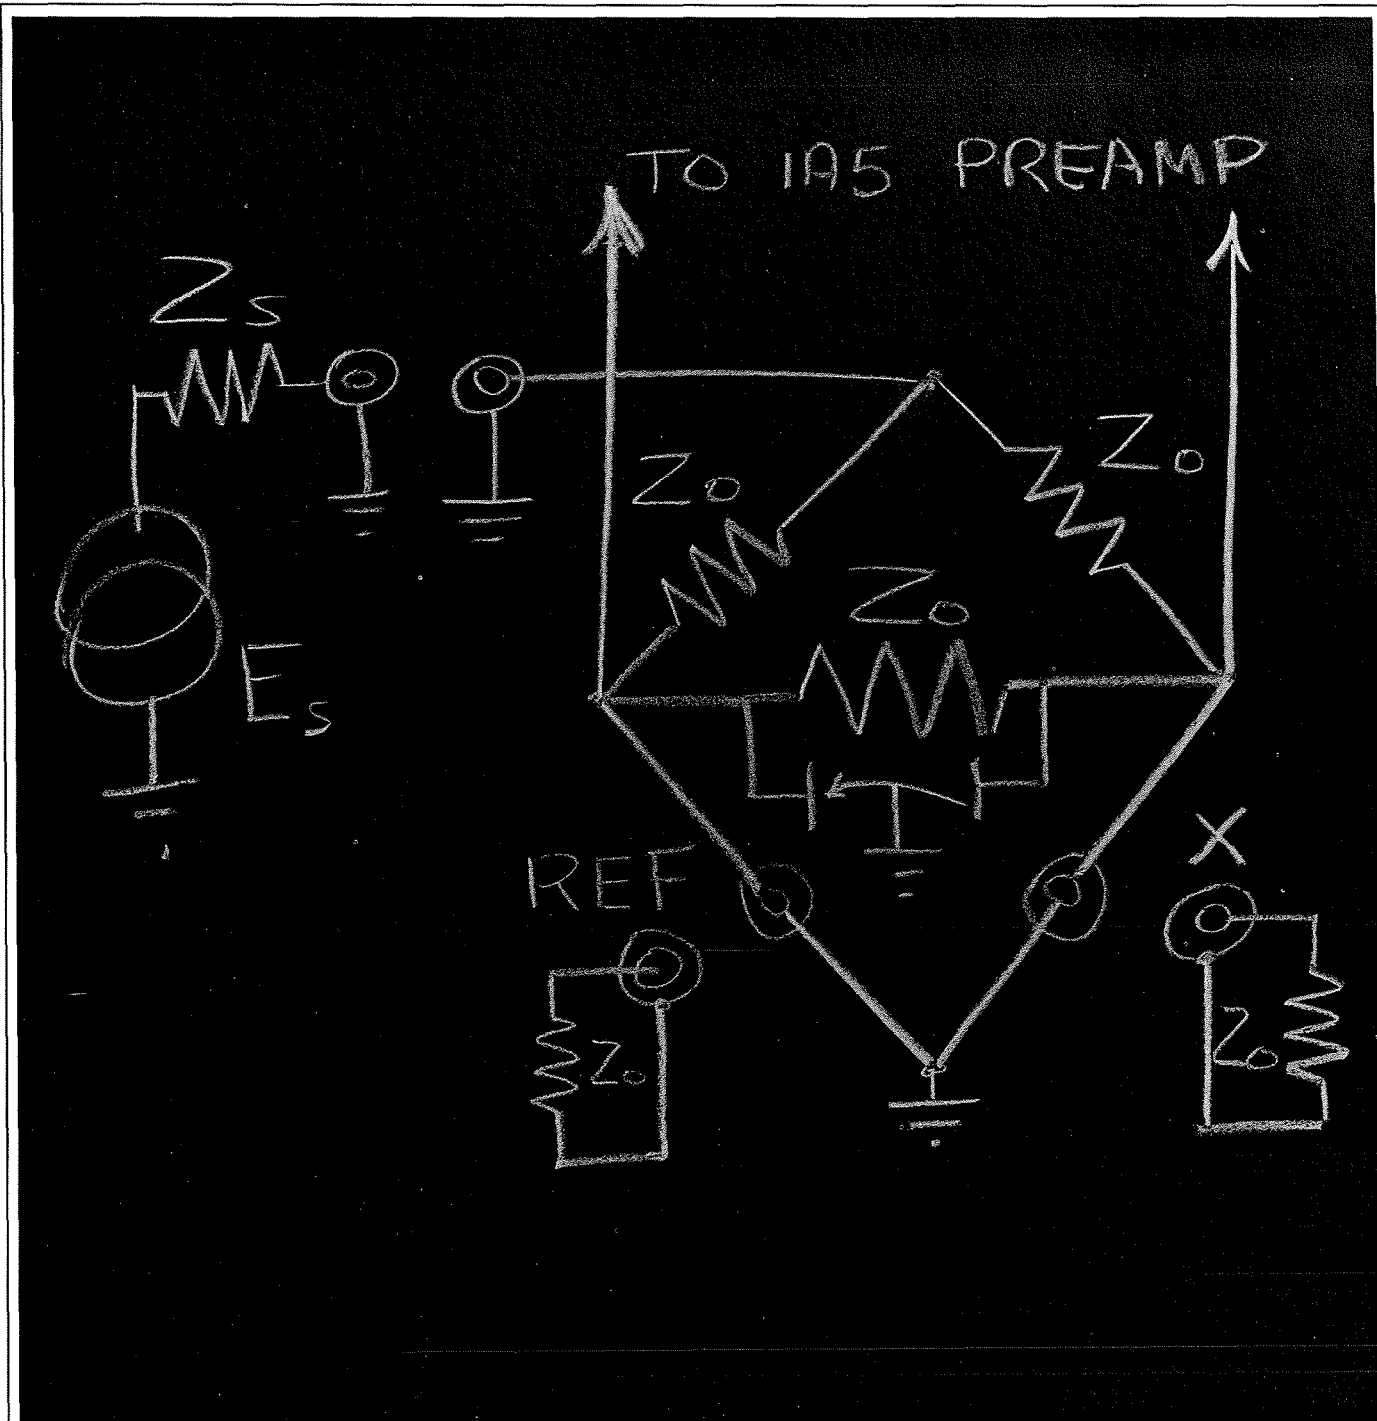 TO 1A5 PREAMP
Zs
Zo
Zo
Zo
Es
X
REF
Zo
Zo